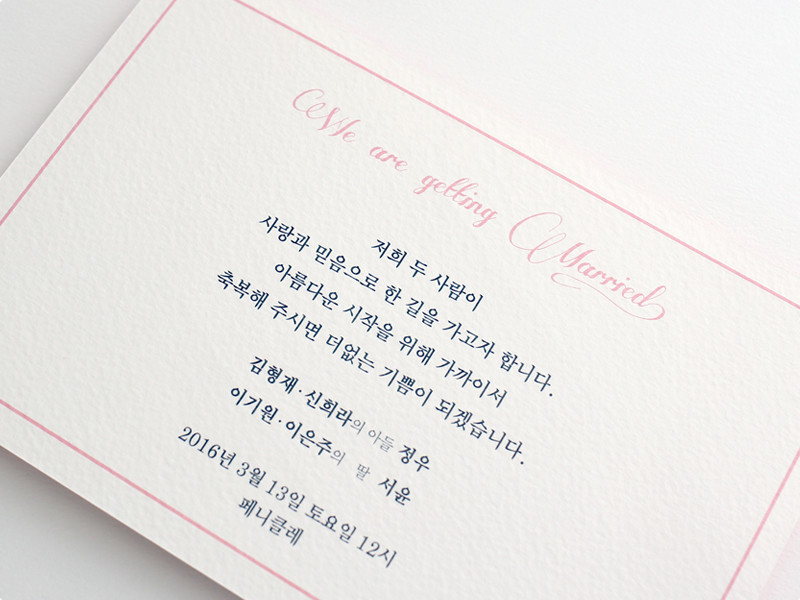 We are getting Married
저희 두 사람이
사랑과 믿음으로 한 길을 가고자 합니다.
아름다운 시작을 위해 가까이서
축복해 주시면 더없는 기쁨이 되겠습니다.
김형재·신희라의 아들 정우
이기원·이은주의 딸 서윤
2016년 3월 13일 토요일 12시
페니클레